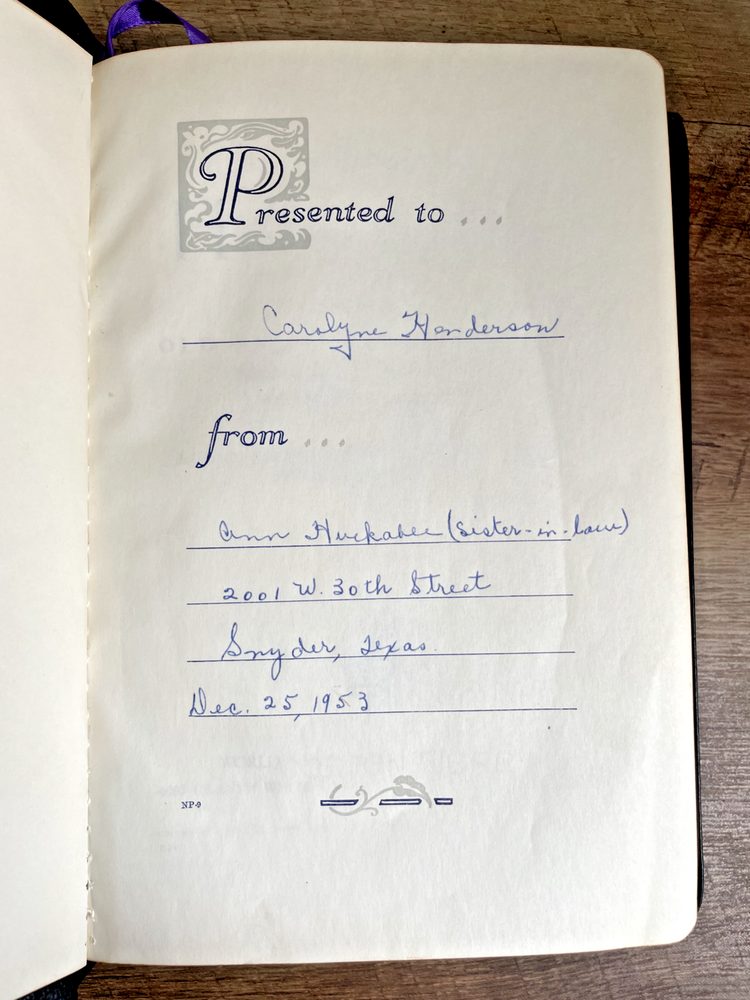 Presented to ...
Carolyne Henderson
from ...
Ann Huckabee (Sister-in-law)
2001 W. 30th Street
Snyder, Texas.
Dec. 25, 1953
NP-9